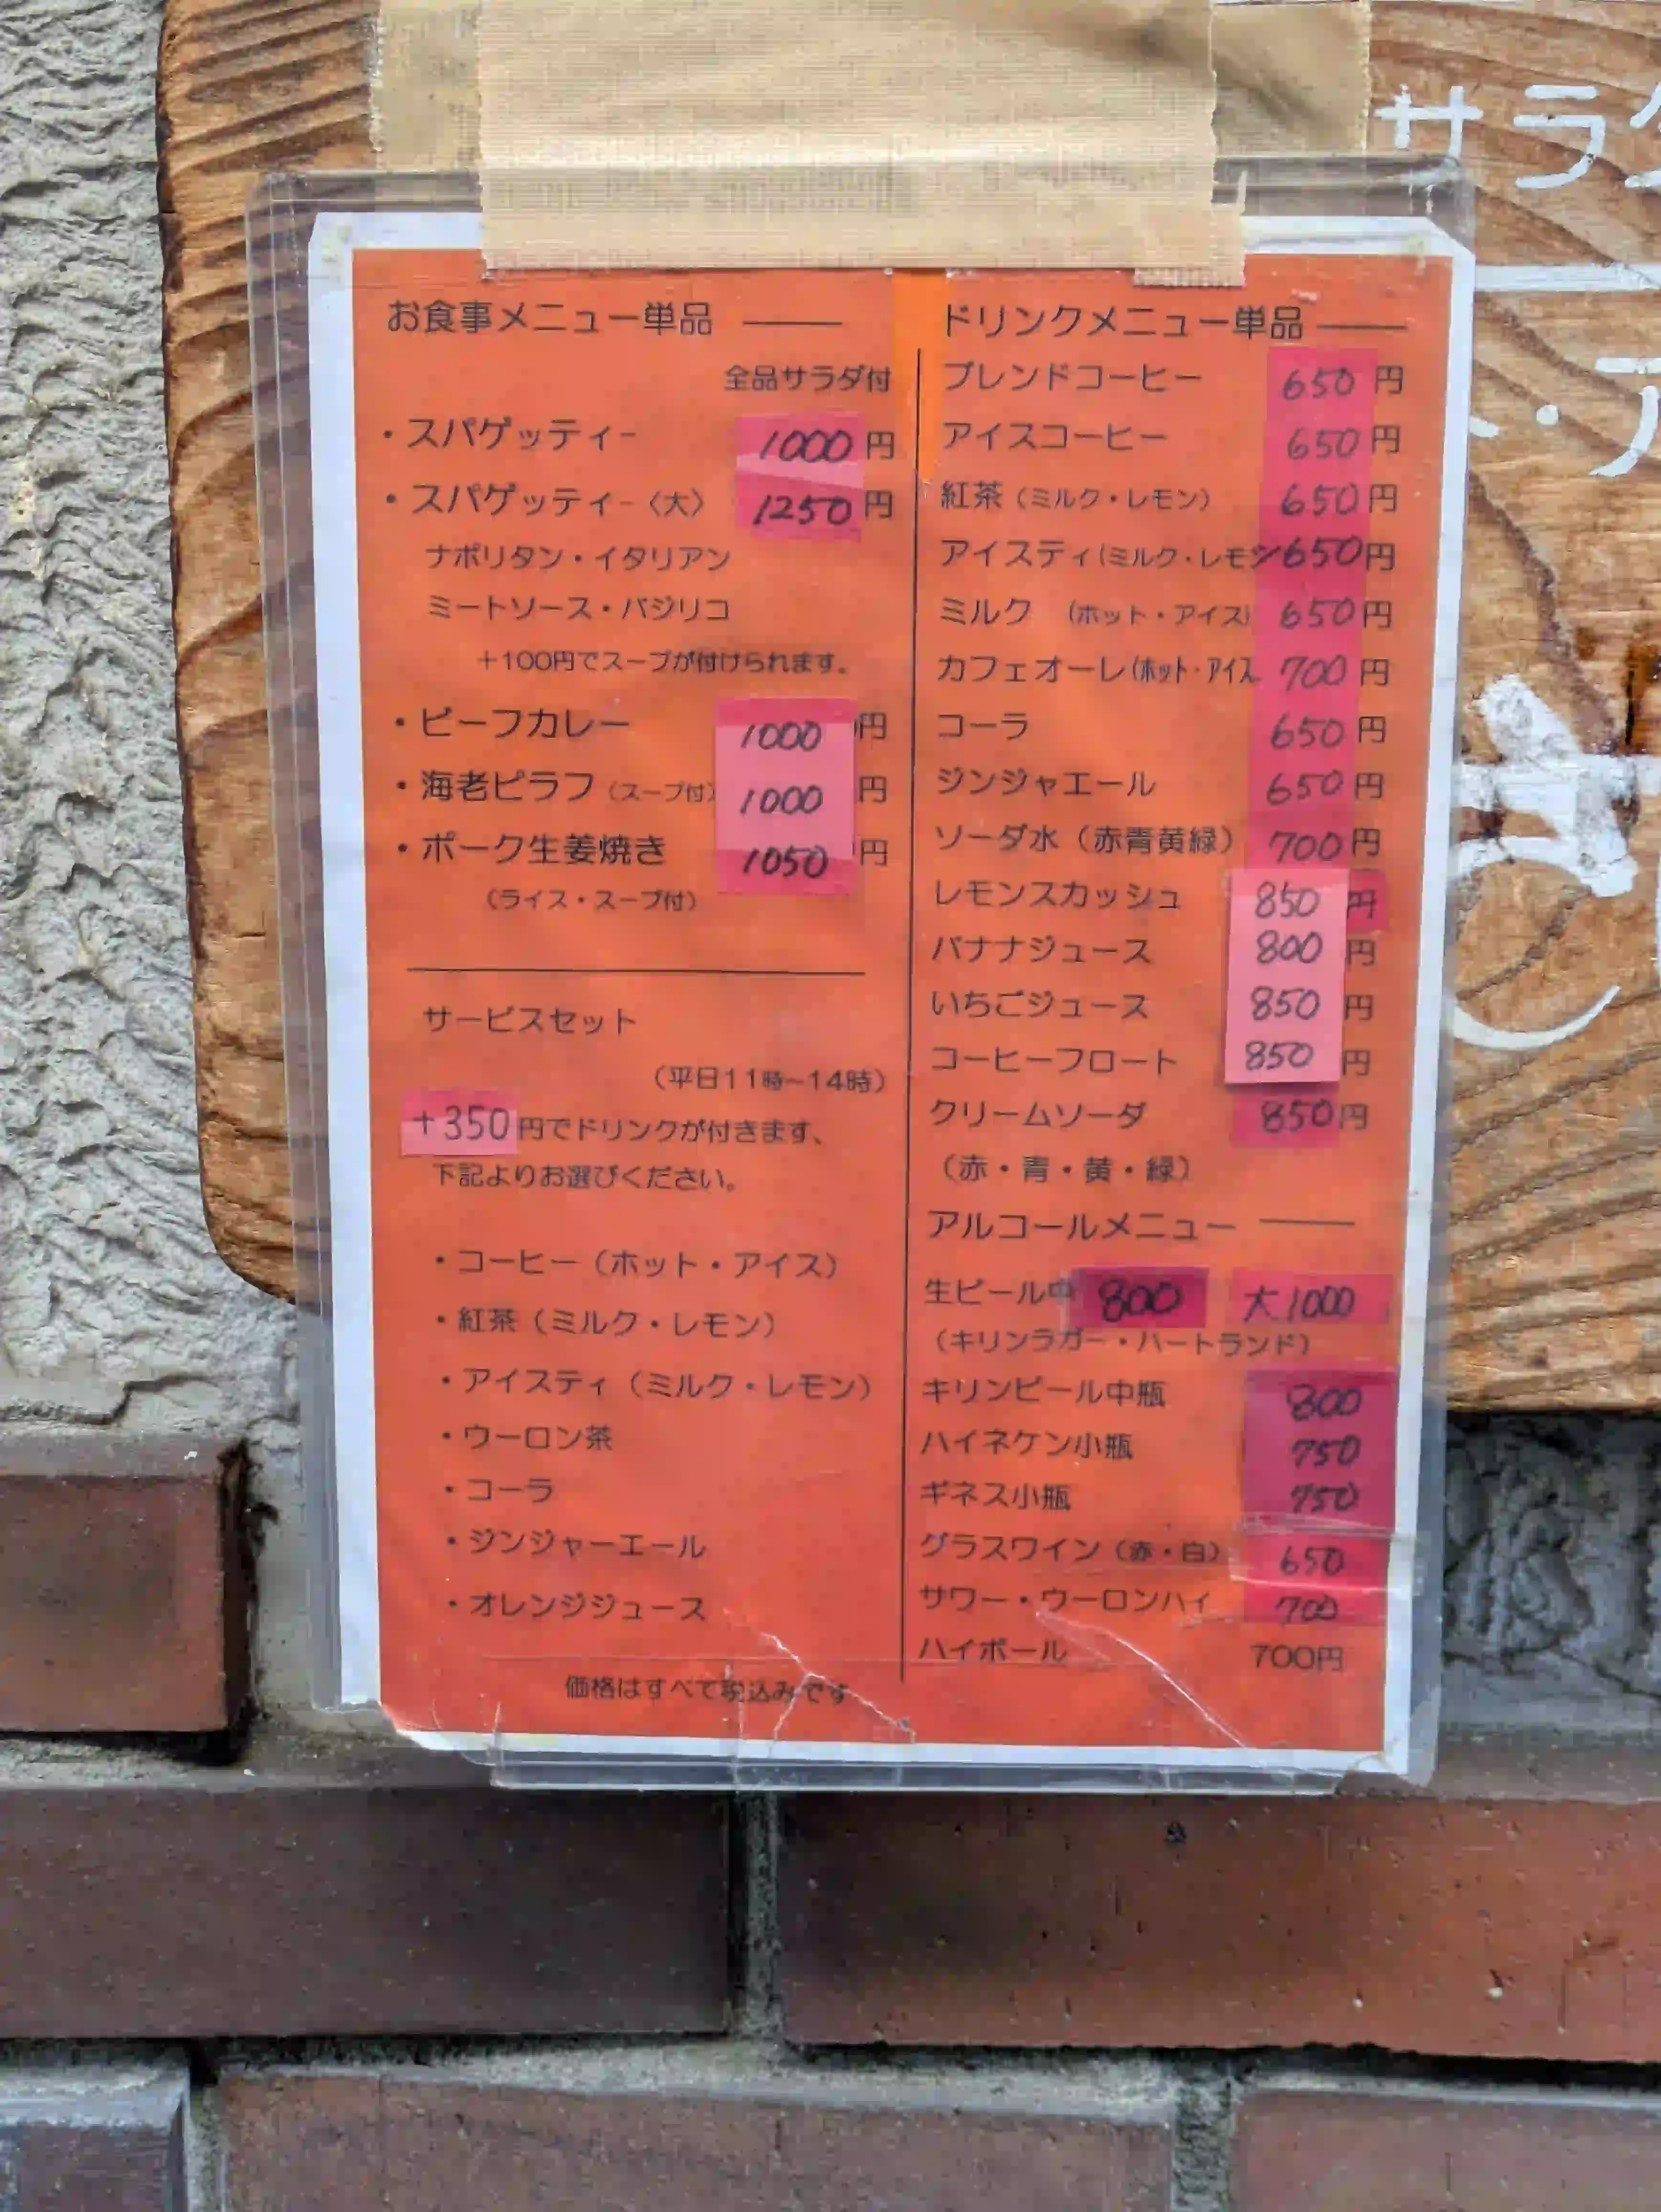 お食事メニュー単品
全品サラダ付
・スパゲッティー 1000円
・スパゲッティー〈大〉 1250円
ナポリタン・イタリアン
ミートソース・バジリコ
+100円でスープが付けられます。
・ビーフカレー 1000円
・海老ピラフ（スープ付） 1000円
・ポーク生姜焼き 1050円
（ライス・スープ付）
サービスセット
（平日11時~14時）
+350円でドリンクが付きます、
下記よりお選びください。
・コーヒー（ホット・アイス）
・紅茶（ミルク・レモン）
・アイスティ（ミルク・レモン）
・ウーロン茶
・コーラ
・ジンジャーエール
・オレンジジュース
価格はすべて税込みです
ドリンクメニュー単品
ブレンドコーヒー 650円
アイスコーヒー 650円
紅茶（ミルク・レモン） 650円
アイスティ（ミルク・レモン 650円
ミルク （ホット・アイス） 650円
カフェオーレ（ホット・アイス 700円
コーラ 650円
ジンジャエール 650円
ソーダ水（赤青黄緑） 700円
レモンスカッシュ 850円
バナナジュース 800円
いちごジュース 850円
コーヒーフロート 850円
クリームソーダ 850円
（赤・青・黄・緑）
アルコールメニュー
生ビール中 800 大1000
（キリンラガー・ハートランド）
キリンビール中瓶 800
ハイネケン小瓶 750
ギネス小瓶 750
グラスワイン（赤・白） 650
サワー・ウーロンハイ 700
ハイボール 700円
サラ